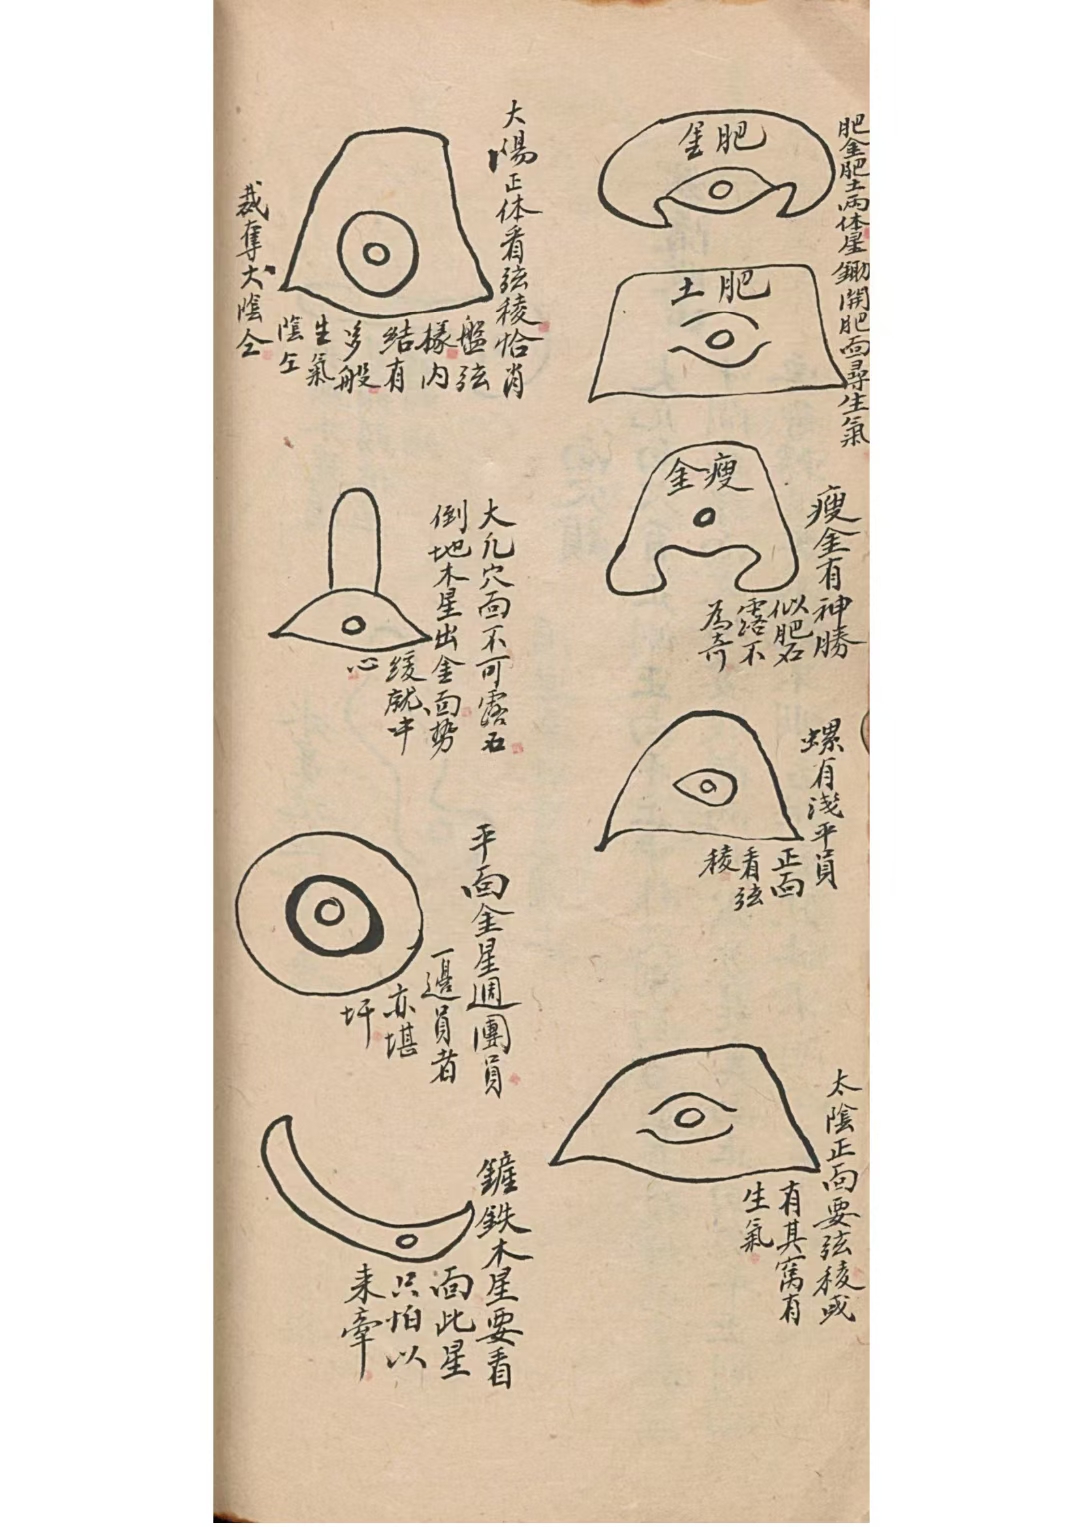 肥金肥土兩体星鋤開肥面尋生氣
金肥
土肥
瘦金有神勝
似肥石
露不
為奇
金瘦
螺有淺平員
正面
看弦
稜
太陰正面要弦稜或
有其窩有
生氣
大陽正体看弦稜恰肖
盤弦
樣內
結有
多般
生氣
陰仝
裁奪太陰仝
大凡穴面不可露石
倒地木星出金面势
緩就中
心
平面金星週團員
一邊員者
亦堪
坪
鏟鉄木星要看
面此星
只怕以
来牽